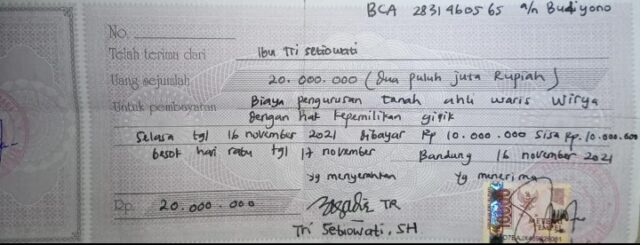 BCA 2831460565 a/n Budiyono
No.
Telah terima dari Ibu Tri Setiowati
Uang sejumlah 20.000.000 (dua puluh juta Rupiah)
Untuk pembayaran Biaya pengurusan tanah ahli waris Wirya
dengan hak kepemilikan girik
Selasa tgl 16 november 2021 dibayar Rp 10.000.000 sisa Rp. 10.000.000
besok hari rabu tgl 17 november Bandung 16 november 2021
yg menyerahkan yg menerima
Rp. 20.000.000
TR
Tri Setiowati, SH